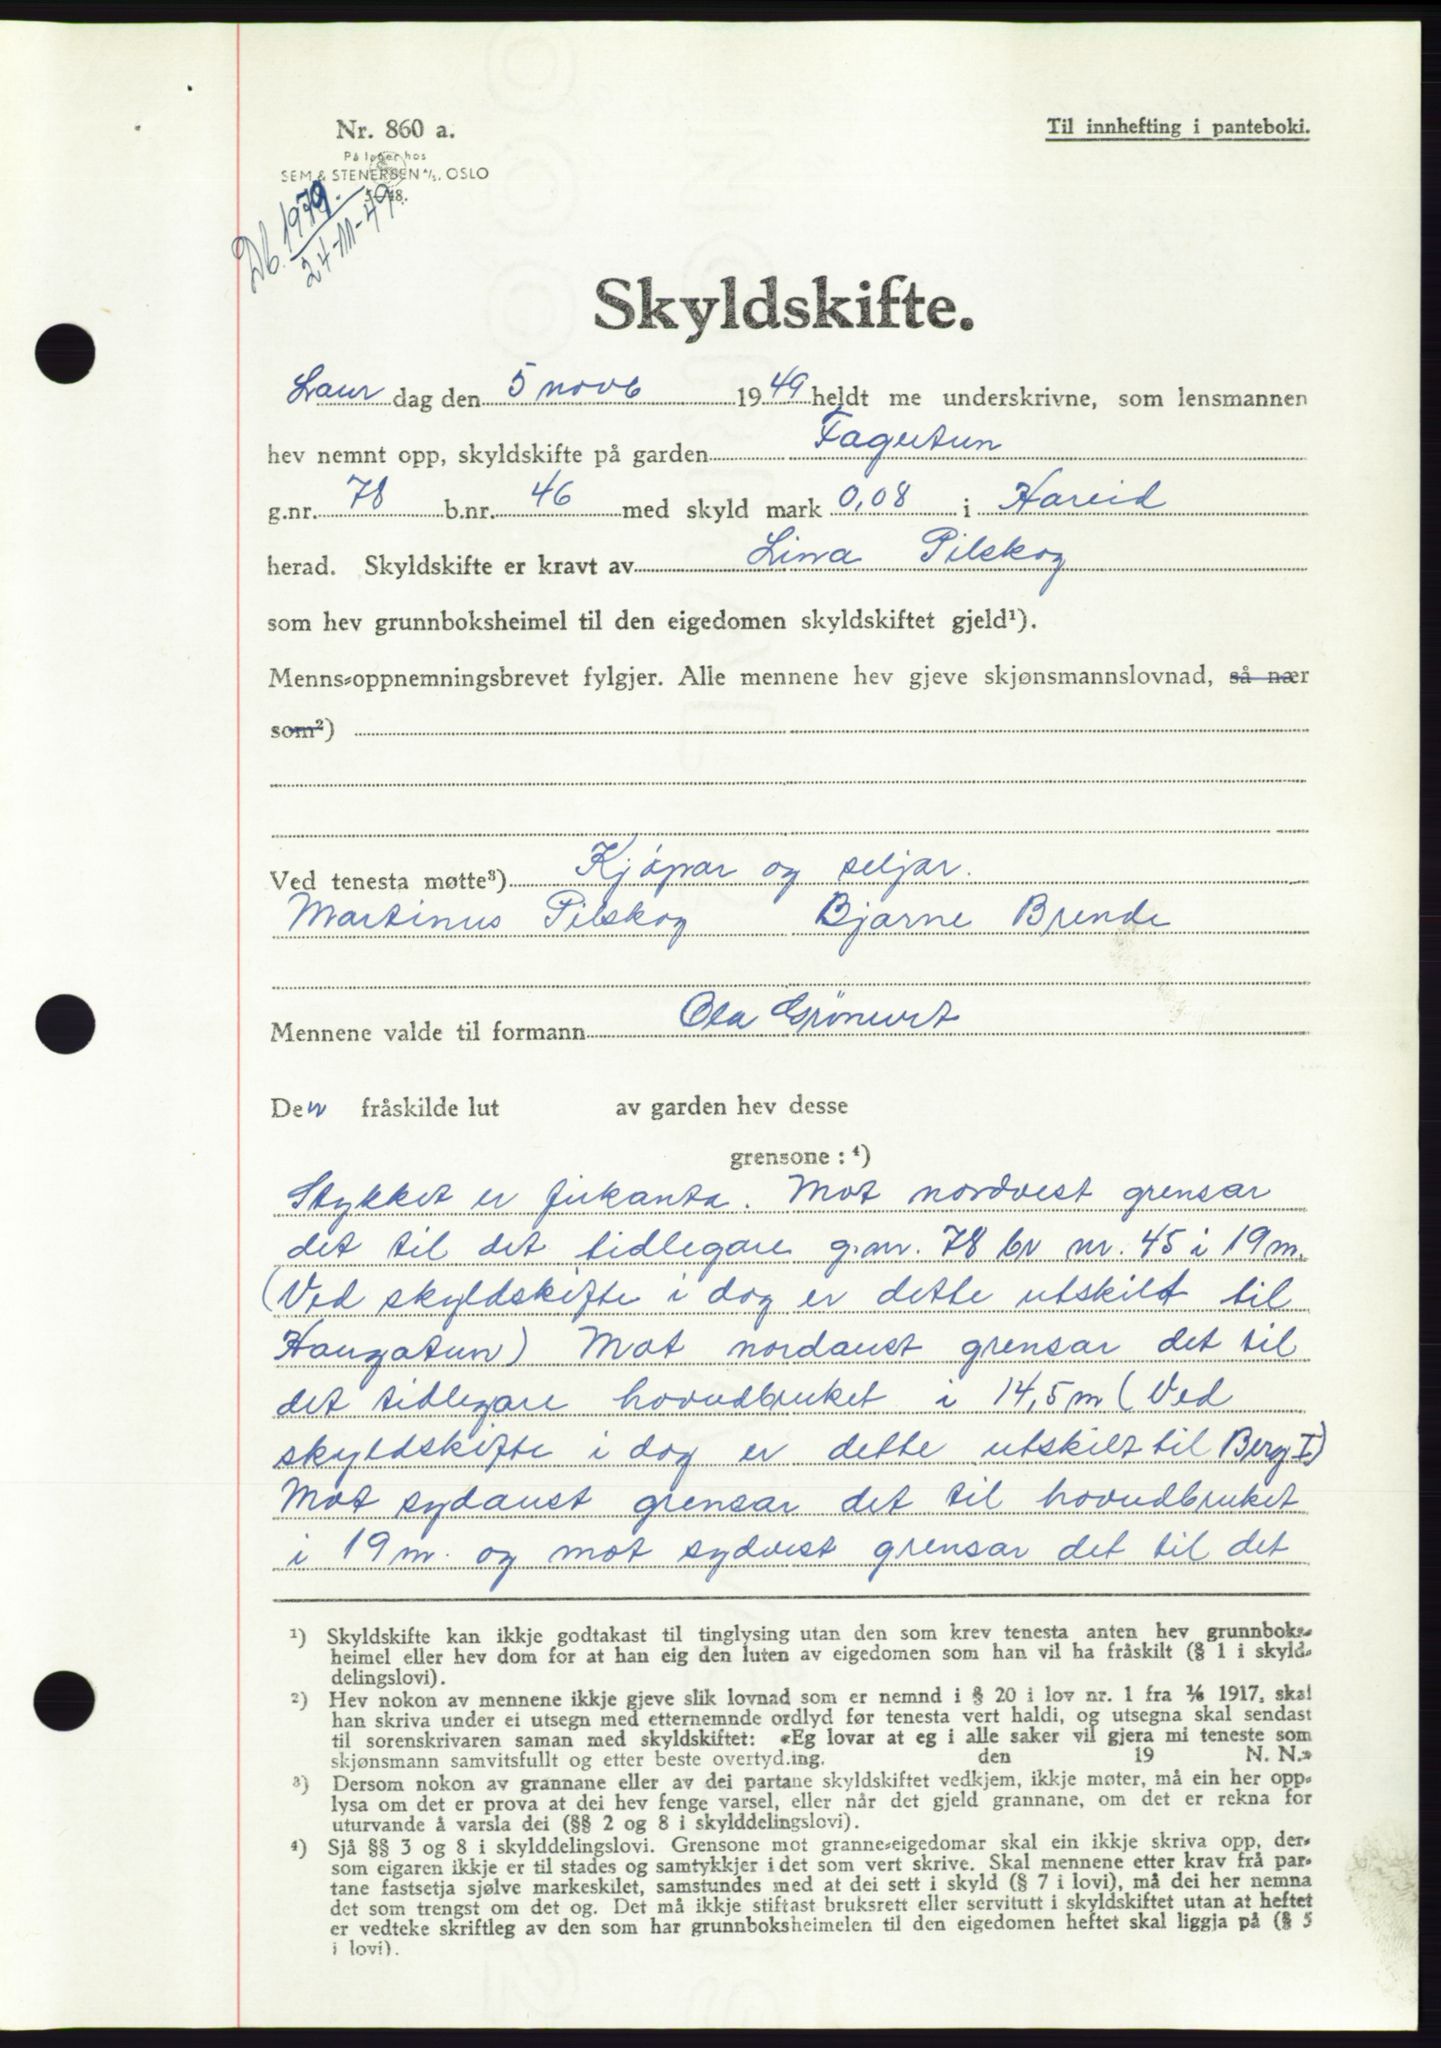 Nr. 860 a.
Til innhefting i panteboki.
På lager hos
SEM & STENERSEN A/S, OSLO
5-48.
Db. 1979.
24-11-49
Skyldskifte.
Laur dag den 5 novb 1949 heldt me underskrivne, som lensmannen
hev nemnt opp, skyldskifte på garden Fagertun
g.nr. 78 b.nr. 46 med skyld mark 0,08 i Hareid
herad. Skyldskifte er kravt av Lina Pilskog
som hev grunnboksheimel til den eigedomen skyldskiftet gjeld¹).
Menns-oppnemningsbrevet fylgjer. Alle mennene hev gjeve skjønsmannslovnad, så nær
som²)
Ved tenesta møtte³) Kjöpar og seljar.
Martinus Pilskog Bjarne Brende
Mennene valde til formann Ola Grönevet
Den fråskilde lut av garden hev desse
grensone : ⁴)
Stykket er firkanta. Mot nordvest grensar
det til det tidlegare g.nr. 78 br nr. 45 i 19 m.
(Ved skyldskifte i dag er dette utskilt til
Haugatun) Mot nordaust grensar det til
det tidlegare hovudbruket i 14,5 m (Ved
skyldskifte i dag er dette utskilt til Berg I)
Mot sydaust grensar det til hovudbruket
i 19 m. og mot sydvest grensar det til det
¹) Skyldskifte kan ikkje godtakast til tinglysing utan den som krev tenesta anten hev grunnboks-
heimel eller hev dom for at han eig den luten av eigedomen som han vil ha fråskilt (§ 1 i skyld-
delingslovi).
²) Hev nokon av mennene ikkje gjeve slik lovnad som er nemnd i § 20 i lov nr. 1 fra 1/6 1917, skal
han skriva under ei utsegn med etternemnde ordlyd før tenesta vert haldi, og utsegna skal sendast
til sorenskrivaren saman med skyldskiftet: «Eg lovar at eg i alle saker vil gjera mi teneste som
skjønsmann samvitsfullt og etter beste overtyding. den 19 N. N.»
³) Dersom nokon av grannane eller av dei partane skyldskiftet vedkjem, ikkje møter, må ein her opp-
lysa om det er prova at dei hev fenge varsel, eller når det gjeld grannane, om det er rekna for
uturvande å varsla dei (§§ 2 og 8 i skylddelingslovi).
⁴) Sjå §§ 3 og 8 i skylddelingslovi. Grensone mot granne-eigedomar skal ein ikkje skriva opp, der-
som eigaren ikkje er til stades og samtykkjer i det som vert skrive. Skal mennene etter krav frå par-
tane fastsetja sjølve markeskilet, samstundes med at dei sett i skyld (§ 7 i lovi), må dei her nemna
det som trengst om det og. Det må ikkje stiftast bruksrett eller servitutt i skyldskiftet utan at heftet
er vedteke skriftleg av den som har grunnboksheimelen til den eigedomen heftet skal liggja på (§ 5
i lovi).